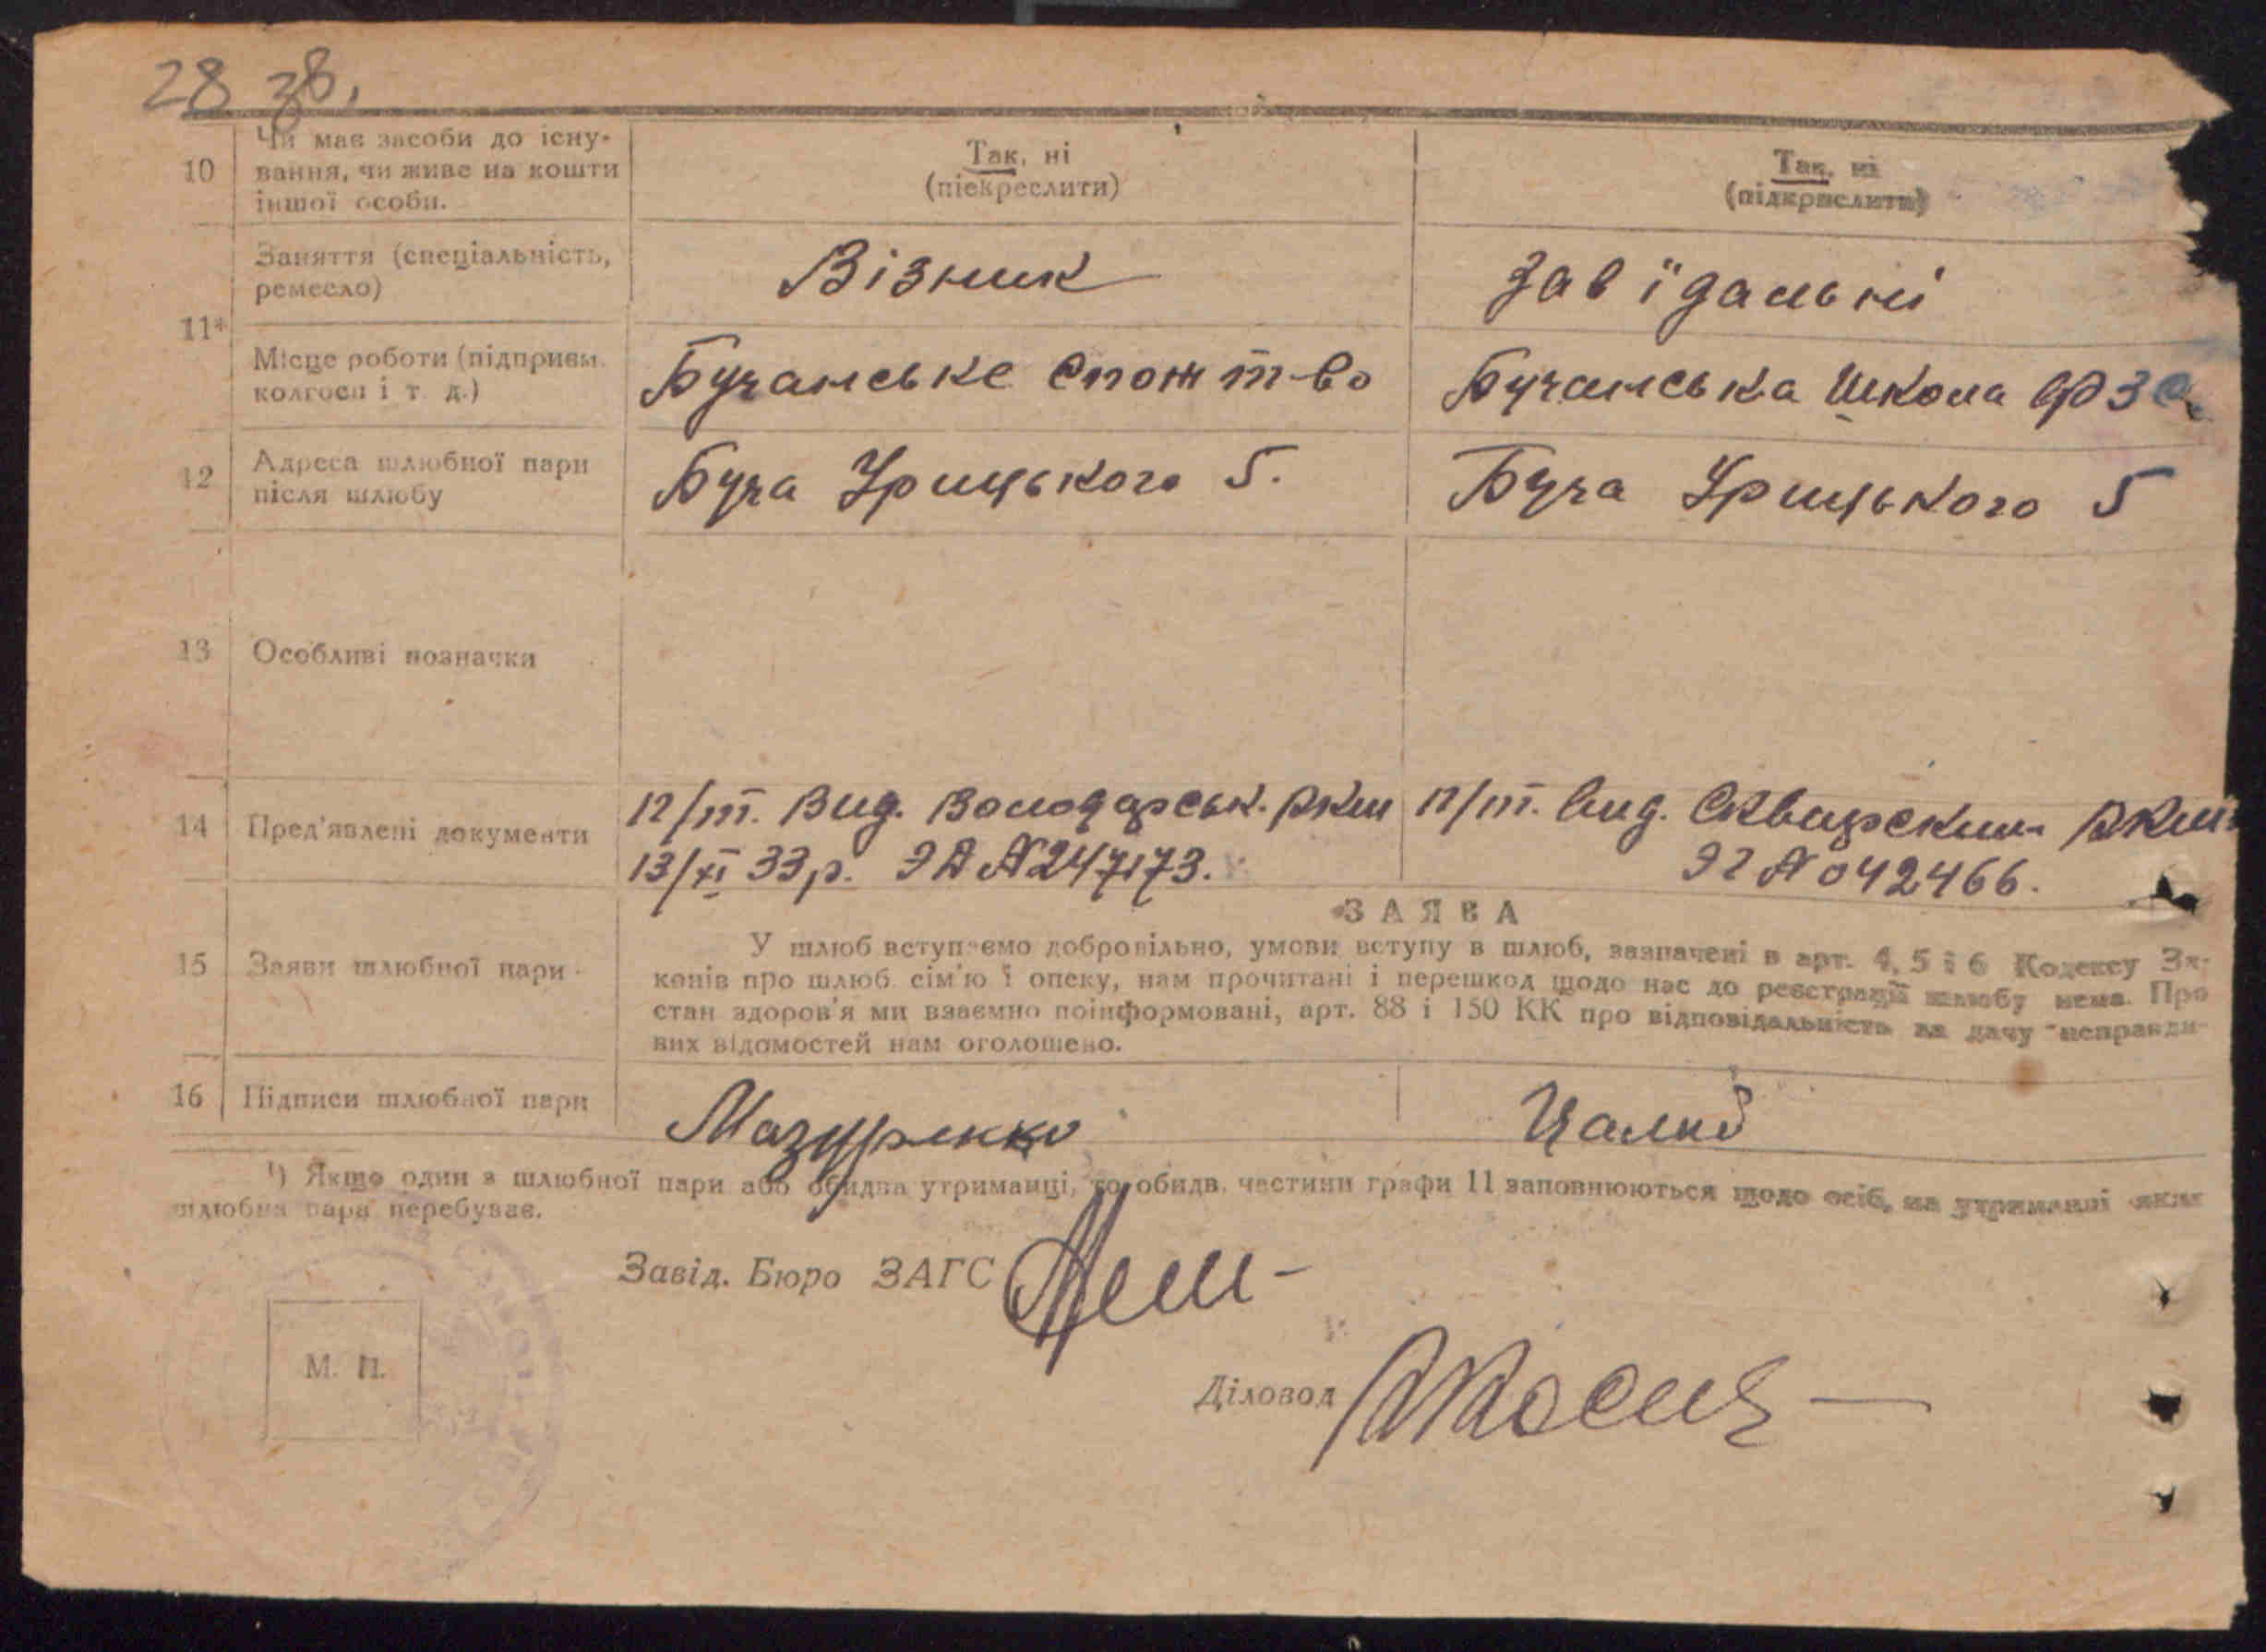 28 зв.
10 Чи має засоби до існу-
вання, чи живе на кошти
іншої особи.
Так, ні
(піекреслити)
Так, ні
(підкреслити)
11*
Заняття (спеціальність,
ремесло)
Візник
Зав їдальні
Місце роботи (підприєм.
колгосп і т. д.)
Бучанське спож т-во
Бучанська школа ФЗО
12 Адреса шлюбної пари
після шлюбу
Буча Урицького 5.
Буча Урицького 5
13 Особливі позначки
14 Пред'явлені документи
п/т. Вид. Володарськ. РКМ
13/XI 33р. ЭД № 247173.
п/т. вид. Сквирским РКМ
№ 042466.
15 Заяви шлюбної пари
ЗАЯВА
У шлюб вступаємо добровільно, умови вступу в шлюб, зазначені в арт. 4, 5 і 6 Кодексу За-
конів про шлюб сім'ю і опеку, нам прочитані і перешкод щодо нас до реєстрації шлюбу нема. Про
стан здоров'я ми взаємно поінформовані, арт. 88 і 150 КК про відповідальність за дачу неправди-
вих відомостей нам оголошено.
16 Підписи шлюбної пари
Мазуренко
¹) Якщо один з шлюбної пари або обидва утриманці, то обидв. частини графи 11 заповнюються щодо осіб, на утриманні яких
шлюбна пара перебуває.
Завід. Бюро ЗАГС
М. П.
Діловод